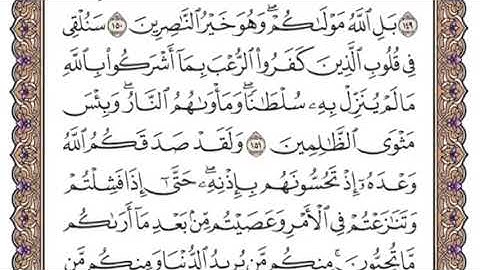 ١٤٩ بَلِ ٱللَّهُ مَوْلَىٰكُمْ ۖ وَهُوَ خَيْرُ ٱلنَّـٰصِرِينَ ١٥٠ سَنُلْقِى
فِى قُلُوبِ ٱلَّذِينَ كَفَرُوا۟ ٱلرُّعْبَ بِمَآ أَشْرَكُوا۟ بِٱللَّهِ
مَا لَمْ يُنَزِّلْ بِهِۦ سُلْطَـٰنًا ۖ وَمَأْوَىٰهُمُ ٱلنَّارُ ۚ وَبِئْسَ
مَثْوَى ٱلظَّـٰلِمِينَ ١٥١ وَلَقَدْ صَدَقَكُمُ ٱللَّهُ
وَعْدَهُۥٓ إِذْ تَحُسُّونَهُم بِإِذْنِهِۦ ۖ حَتَّىٰٓ إِذَا فَشِلْتُمْ
وَتَنَـٰزَعْتُمْ فِى ٱلْأَمْرِ وَعَصَيْتُم مِّنۢ بَعْدِ مَآ أَرَىٰكُم
مَّا تُحِبُّونَ ۚ مِنكُم مَّن يُرِيدُ ٱلدُّنْيَا وَمِنكُم مَّن